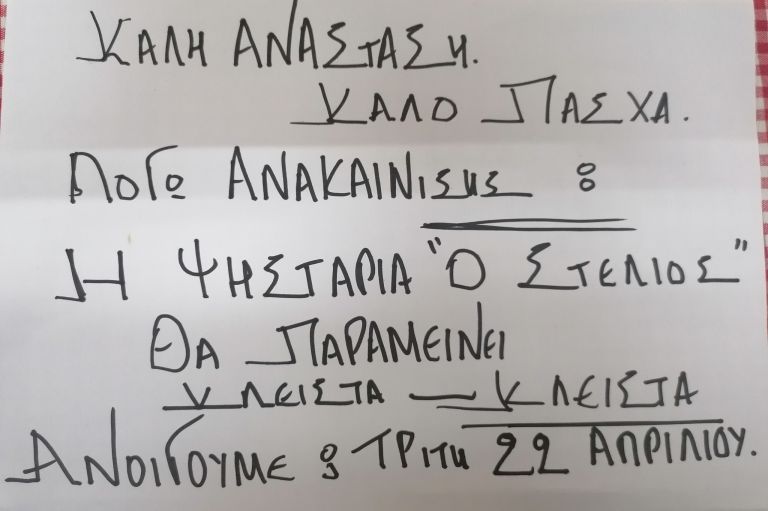 ΚΑΛΗ ΑΝΑΣΤΑΣΗ.
ΚΑΛΟ ΠΑΣΧΑ.
ΛΟΓΩ ΑΝΑΚΑΙΝΙΣΗΣ :
Η ΨΗΣΤΑΡΙΑ "Ο ΣΤΕΛΙΟΣ"
ΘΑ ΠΑΡΑΜΕΙΝΕΙ
ΚΛΕΙΣΤΑ — ΚΛΕΙΣΤΑ
ΑΝΟΙΓΟΥΜΕ : ΤΡΙΤΗ 22 ΑΠΡΙΛΙΟΥ.